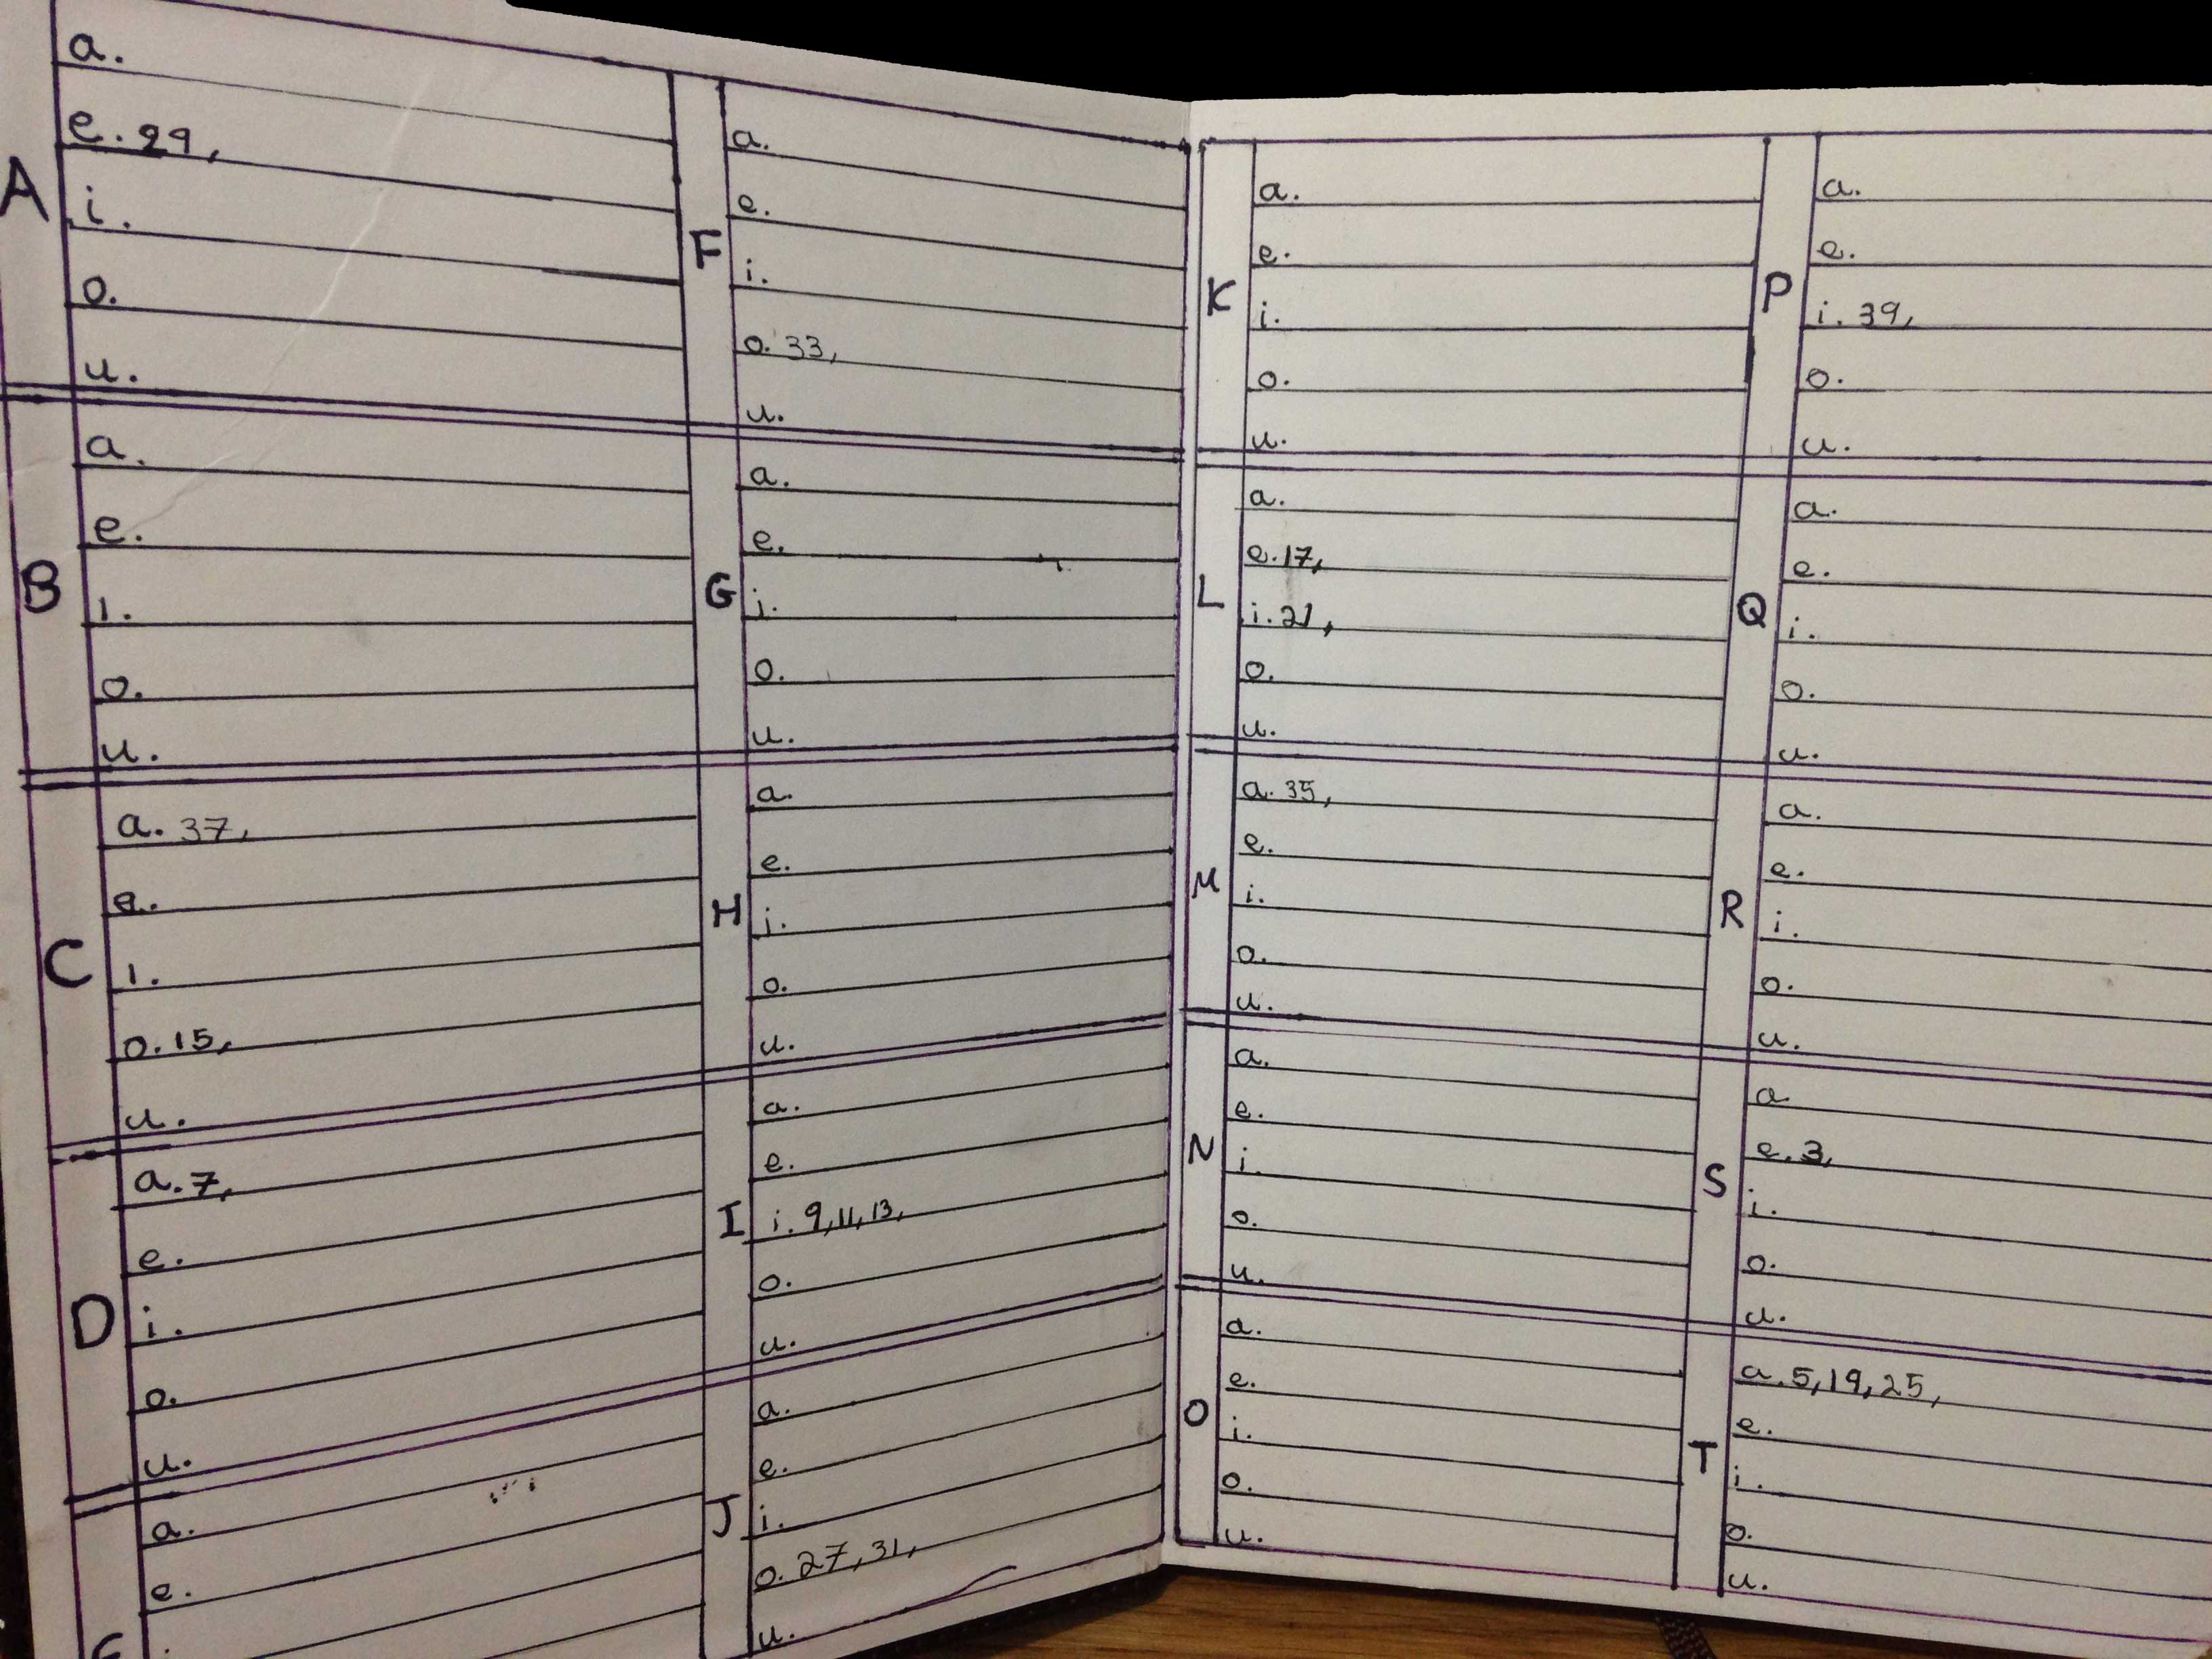 A
a.
e. 29,
i.
o.
u.
B
a.
e.
i.
o.
u.
C
a. 37,
e.
i.
o. 15,
u.
D
a. 7,
e.
i.
o.
u.
E
a.
e.
F
a.
e.
i.
o. 33,
u.
G
a.
e.
i.
o.
u.
H
a.
e.
i.
o.
u.
I
a.
e.
i. 9, 11, 13,
o.
u.
J
a.
e.
i.
o. 27, 31,
u.
K
a.
e.
i.
o.
u.
L
a.
e. 17,
i. 21,
o.
u.
M
a. 35,
e.
i.
o.
u.
N
a.
e.
i.
o.
u.
O
a.
e.
i.
o.
u.
P
a.
e.
i. 39,
o.
u.
Q
a.
e.
i.
o.
u.
R
a.
e.
i.
o.
u.
S
a
e. 3,
i.
o.
u.
T
a. 5, 19, 25,
e.
i.
o.
u.